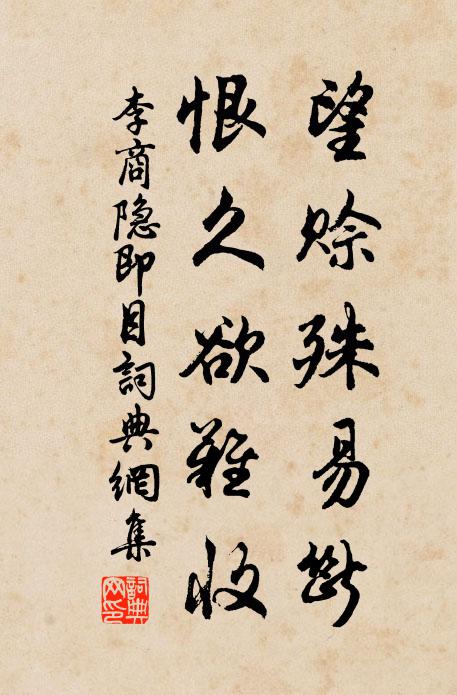 望賒殊易斷
恨久欲難收
李商隐即目詞典網集
詞典网印